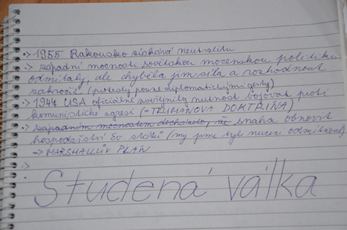 -> 1955 Rakousko získává neutralitu
-> západní mocnosti sovětskou mocenskou politiku
odmítaly, ale chyběla jim síla a rozhodnost
zakročit (pouze diplomatické)
-> 1947 USA oficiálně nutnost bojovat proti
komunistické agresi (= TRUMANOVA DOKTRÍNA)
-> snaha obnovit
hospodářství (my jsme byli nuceni odmítnout)
-> MARSHALLŮV PLÁN
Studená válka